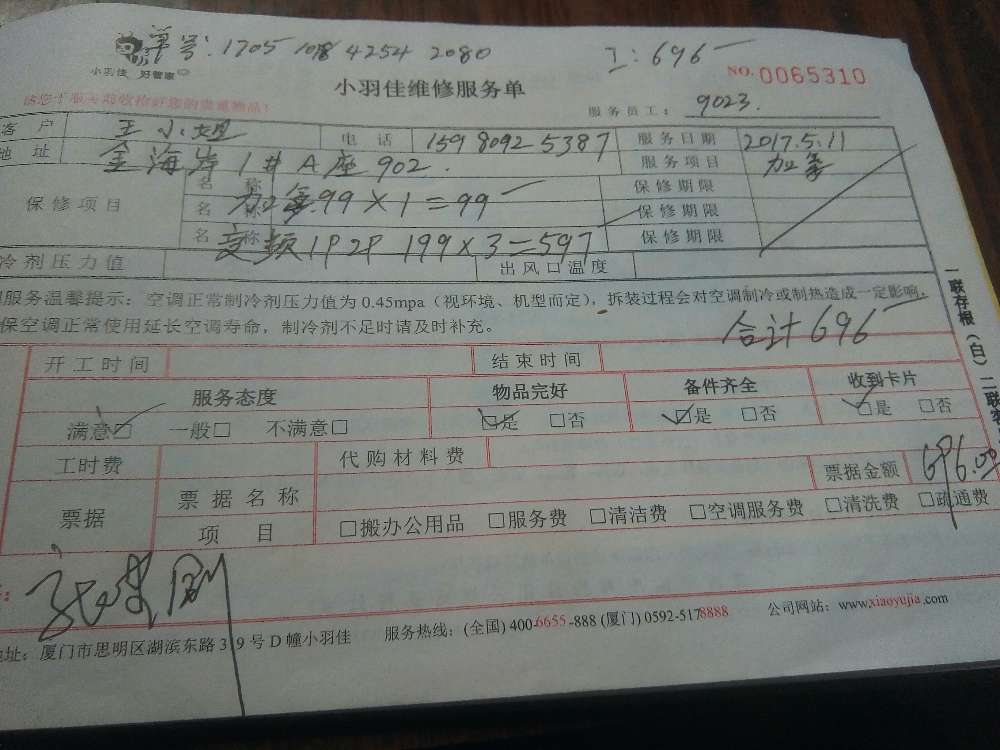 单号: 1705 1018 4254 2080 工: 696
小羽佳 好管家
NO. 0065310
小羽佳维修服务单
服务员工: 9023.
客户 王小姐 电话 159 8092 5387 服务日期 2017.5.11
地址 金海岸1#A座902. 服务项目 加氟
保修项目 名称 加氟99×1=99 保修期限
名称 保修期限
名称 变频1P2P 199×3=597 保修期限
冷剂压力值 出风口温度
服务温馨提示: 空调正常制冷剂压力值为 0.45mpa (视环境、机型而定), 拆装过程会对空调制冷或制热造成一定影响.
保空调正常使用延长空调寿命, 制冷剂不足时请及时补充。
合计696
开工时间 结束时间
服务态度 物品完好 备件齐全 收到卡片
满意□ 一般□ 不满意□ □是 □否 □是 □否 □是 □否
工时费 代购材料费 票据金额 696.00
票据 票据名称
项目 □搬办公用品 □服务费 □清洁费 □空调服务费 □清洗费 □疏通费
地址: 厦门市思明区湖滨东路319号D幢小羽佳 服务热线: (全国) 400-6655-888 (厦门) 0592-5178888 公司网站: www.xiaoyujia.com
一联存根(白) 二联客